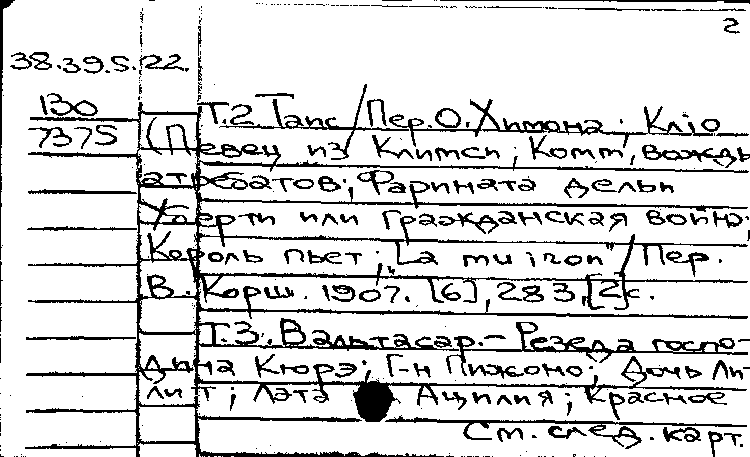 2
38.39.5.22.
130
7375
Т.2. Таис / Пер. О. Химона; Кліо
(Певец из Климси; Комм, вождь
атребатов; Фарината дельи
Уберти или гражданская война;
Король пьет; "La muiron" / Пер.
В. Корш. 1907. [6], 283, [2] с.
Т.3. Вальтасар. - Резеда госпо-
дина Кюрэ; Г-н Пижоно; Дочь Ли-
лит; Лэта Ацилия; Красное
См. след. карт.